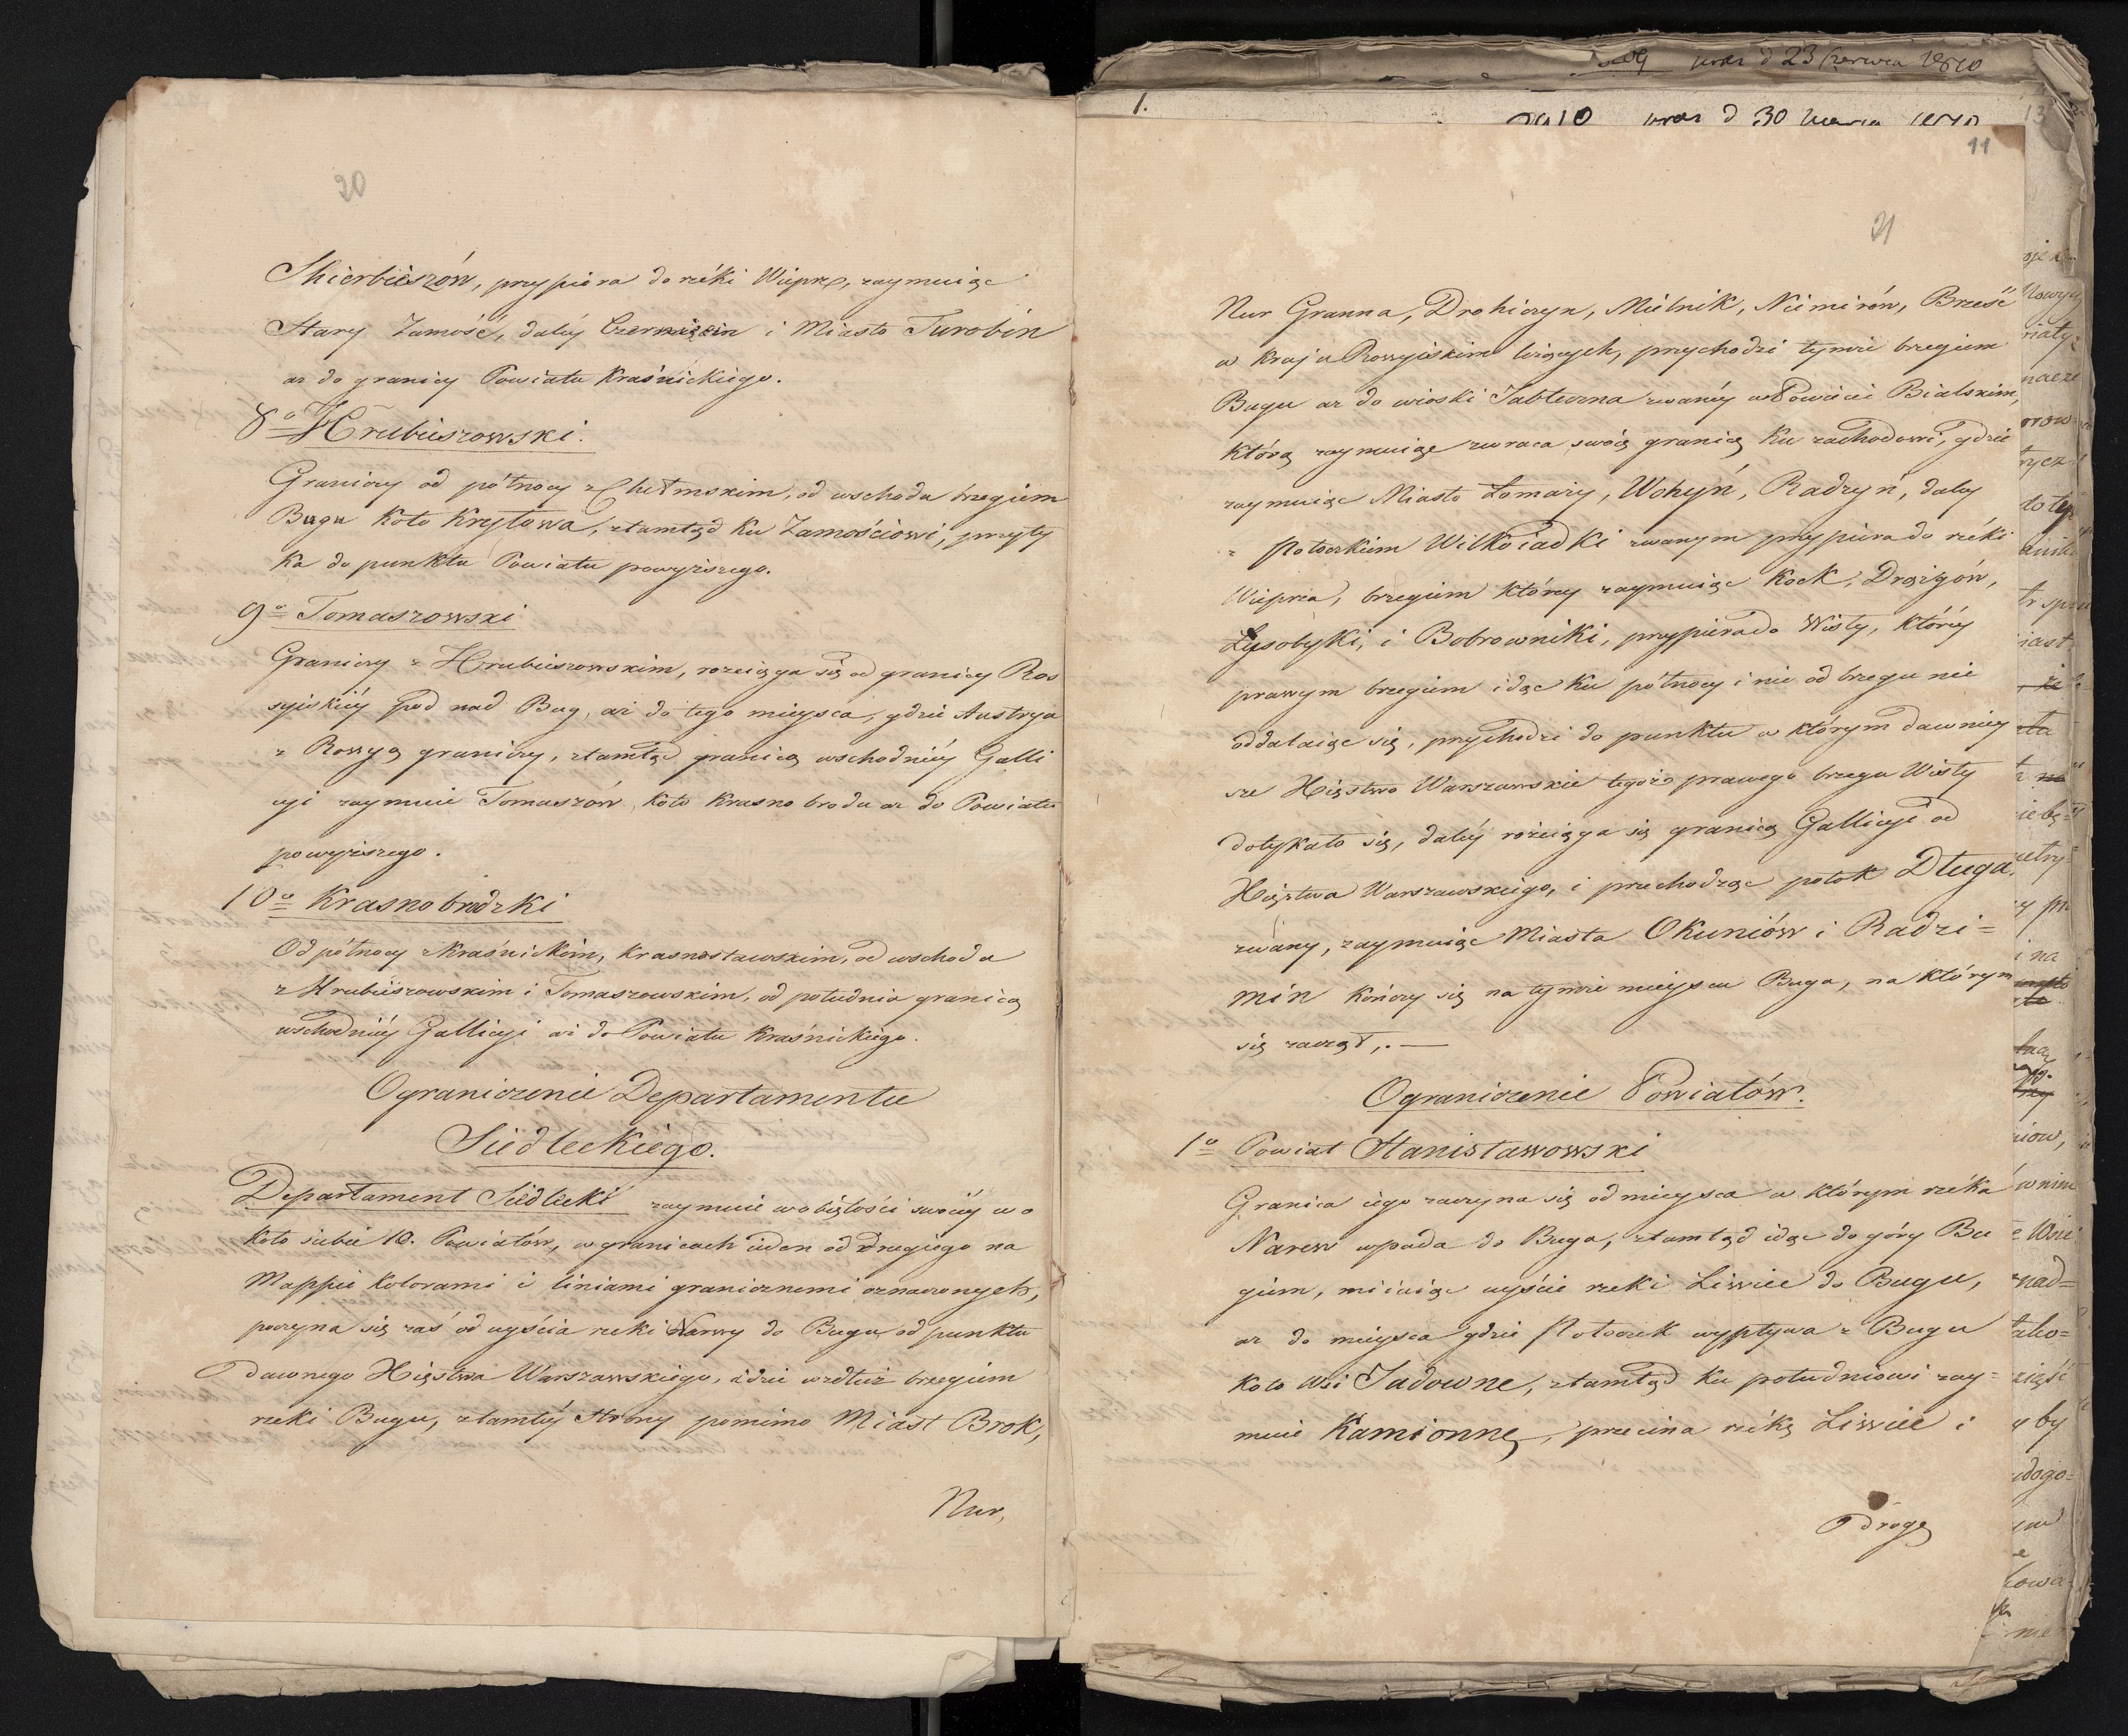 20
Skierbieszów, przypiera do rzéki Wieprz, zaymuiąc
Stary Zamość, daléy Czernięcin i Miasto Turobin
aż do granicy Powiatu Kraśnickiego.
8º Hrubieszowski.
Graniczy od północy z Chełmskim, od wschodu brzegiem
Bugu koło Kryłowa, ztamtąd ku Zamościowi, przyty
ka do punktu Powiatu powyższego.
9º Tomaszowski
Graniczy z Hrubieszowskim, rozciąga się od granicy Ros
syiskiéy pod nad Bug, aż do tego mieysca, gdzie Austrya
z Rossyą graniczy, ztamtąd granicą wschodniéy Galli
cyi zaymuie Tomaszów, koło Krasnobrodu aż do Powiatu
powyższego.
10º Krasnobrodzki
Od północy z Kraśnickim, Krasnostawskim, od wschodu
z Hrubieszowskim i Tomaszowskim, od południa granicą
wschodniéy Gallicyi aż do Powiatu Kraśnickiego.
Ograniczenie Departamentu
Siedleckiego.
Departament Siedlecki zaymuie w obiętości swoiéy w o
koło siebie 10. Powiatów, w granicach ieden od drugiego na
Mappie kolorami i liniami granicznemi oznaczonych,
poczyna się zaś od uyścia rzeki Narwy do Bugu od punktu
dawnego Xięstwa Warszawskiego, idzie wzdłuż brzegiem
rzeki Bugu, ztamtéy strony pomimo Miast Brok,
Nur,
1.
wraz d 23 Czerwca 1810
wraz d 30
11
21
Nur Granna, Drohiczyn, Mielnik, Niemirów, Brześć
w kraju Rossyiskim leżących, przychodzi tymże brzegiem
Bugu aż do wioski Jabłeczna zwanéy w Powiecie Bialskim,
którą zaymuiąc zwraca swoię granicę ku zachodowi, gdzie
zaymuiąc Miasto Łomazy, Wohyń, Radzyń, daléy
z Potoczkiem Wilkoiadki zwanym przypiera do rzéki
Wieprza, brzegiem któréy zaymuiąc Kock, Drążgów,
Łysobyki, i Bobrowniki, przypiera do Wisły, któréy
prawym brzegiem idąc ku północy i nie od brzegu nie
oddalaiąc się, przychodzi do punktu w którym dawniey
sze Xięstwo Warszawskie tegoż prawego brzegu Wisły
dotykało się, daléy rozciąga się granicą Gallicyi od
Xięstwa Warszawskiego, i przechodząc potok Długa
zwany, zaymuiąc Miasta Okuniów i Radzi=
min kończy się na tymże mieyscu Buga, na którym
się zaczął,. —
Ograniczenie Powiatów.
1º Powiat Stanisławowski
Granica iego zaczyna się od mieysca w którym rzéka
Narew wpada do Buga, ztamtąd idąc do góry Bu
giem, miiaiąc uyście rzeki Liwiec do Bugu,
aż do mieysca gdzie Potoczek wypływa z Bugu
koło Wsi Sadowne, ztamtąd ku południowi zay=
muie Kamionnę, przecina rzékę Liwiec i
drogę